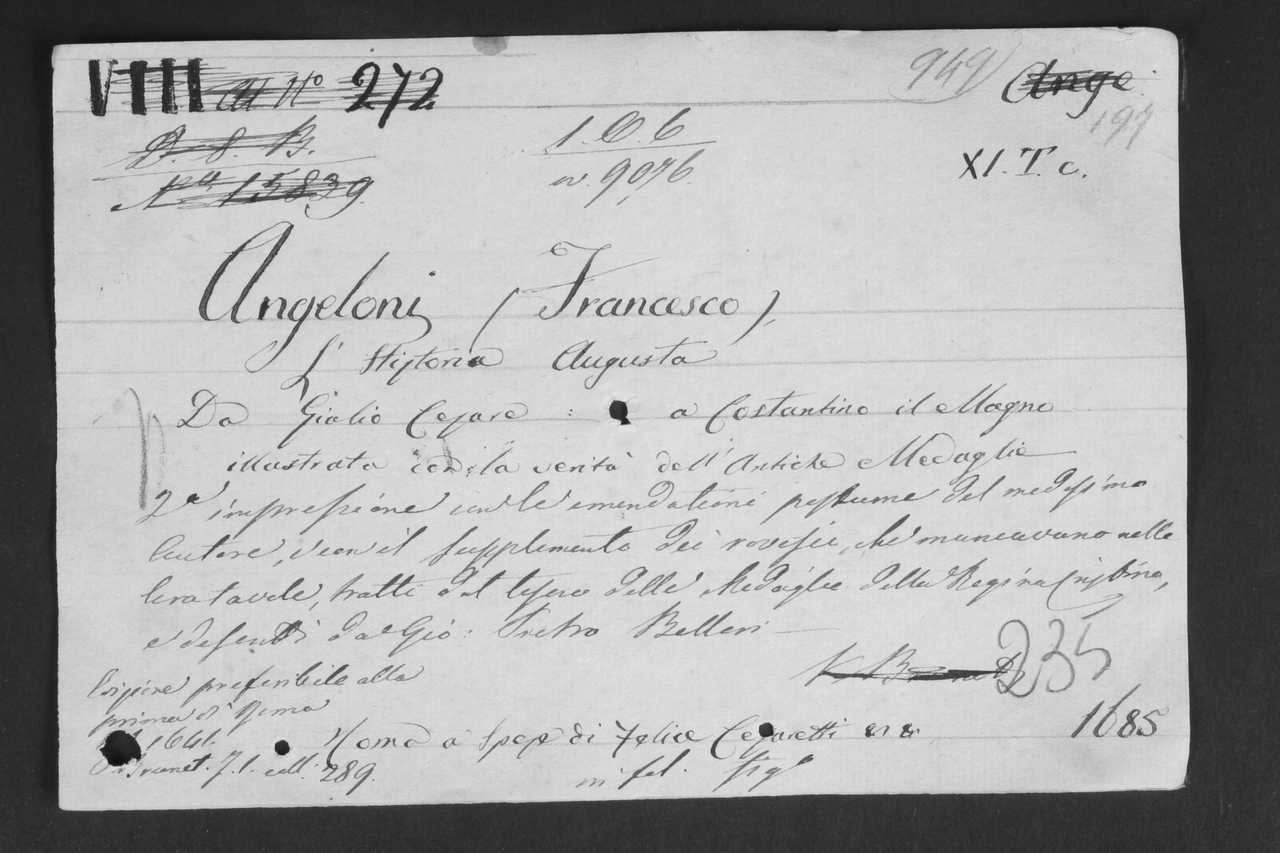 VIII All No 272
949
Ange
197
D. 8. B.
1. D. 6
No 15839
9,076
XI. T. c.
Angeloni (Francesco)
L' Historia Augusta
Da Giulio Cesare : a Costantino il Magno
illustrata con la verità dell' Antiche Medaglie
2a impressione con le emendationi postume del medesimo
Autore, e con il supplemento dei rovesci, che mancavano nelle
tavole, tratti dal tesoro delle Medaglie della Regina Cristina,
e descritti da Gio: Pietro Bellori
235
preferibile alla
prima di Roma
1641.
1685
Roma a spese di Felice Cesaretti
Brunet. T. 1. coll. 289.
in fol. fig.